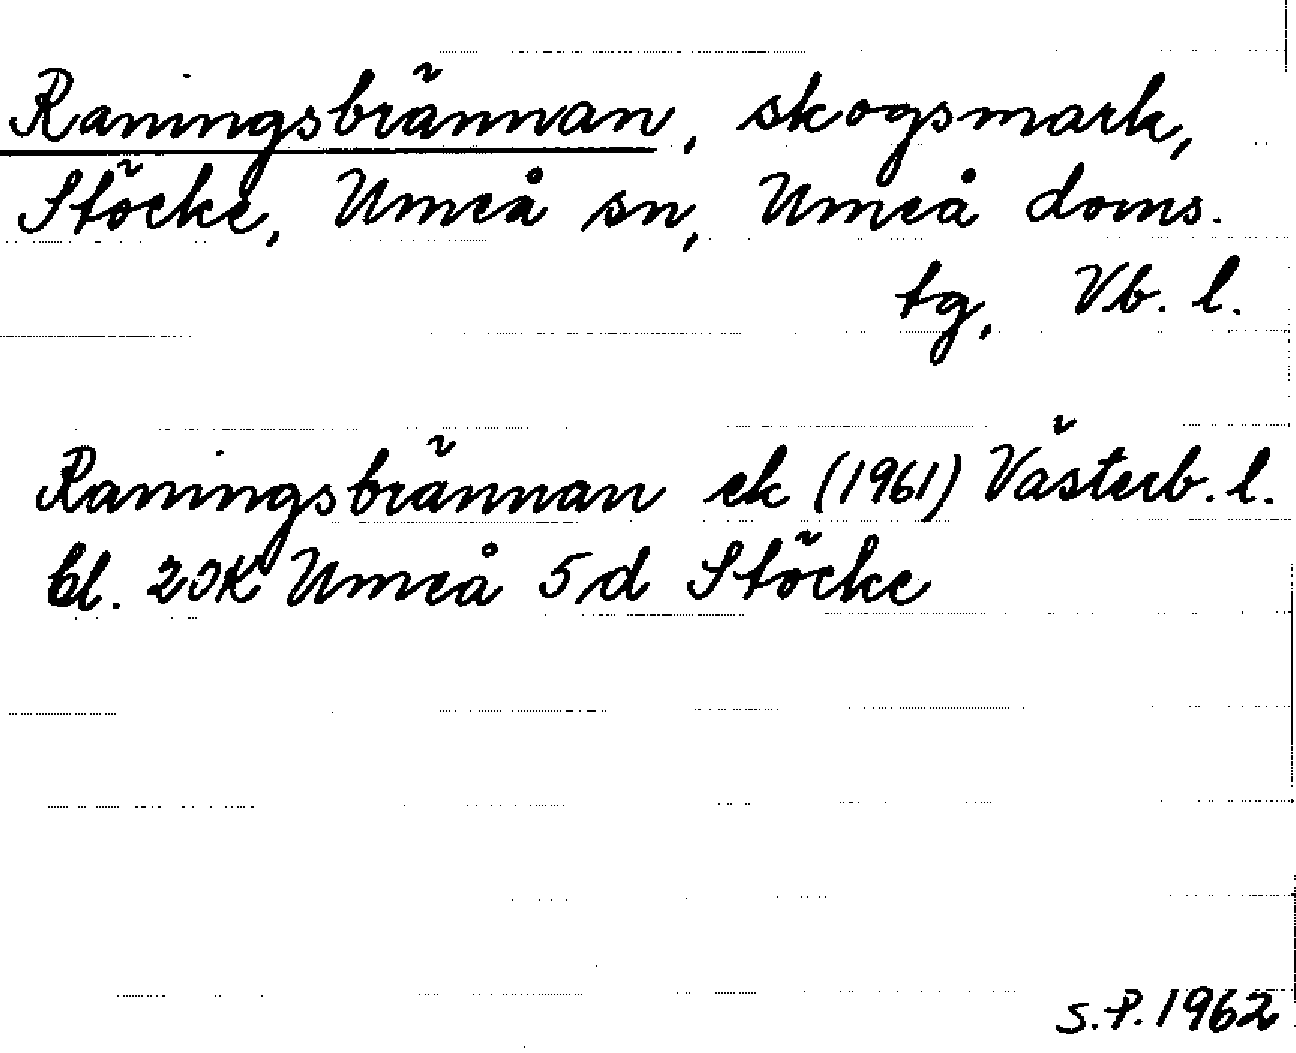 Raningsbrännan, skogsmark,
Stöcke, Umeå sn, Umeå doms.
tg, Vb. l.
Raningsbrännan ek (1961) Västerb. l.
bl. 20K Umeå 5d Stöcke
S.P. 1962